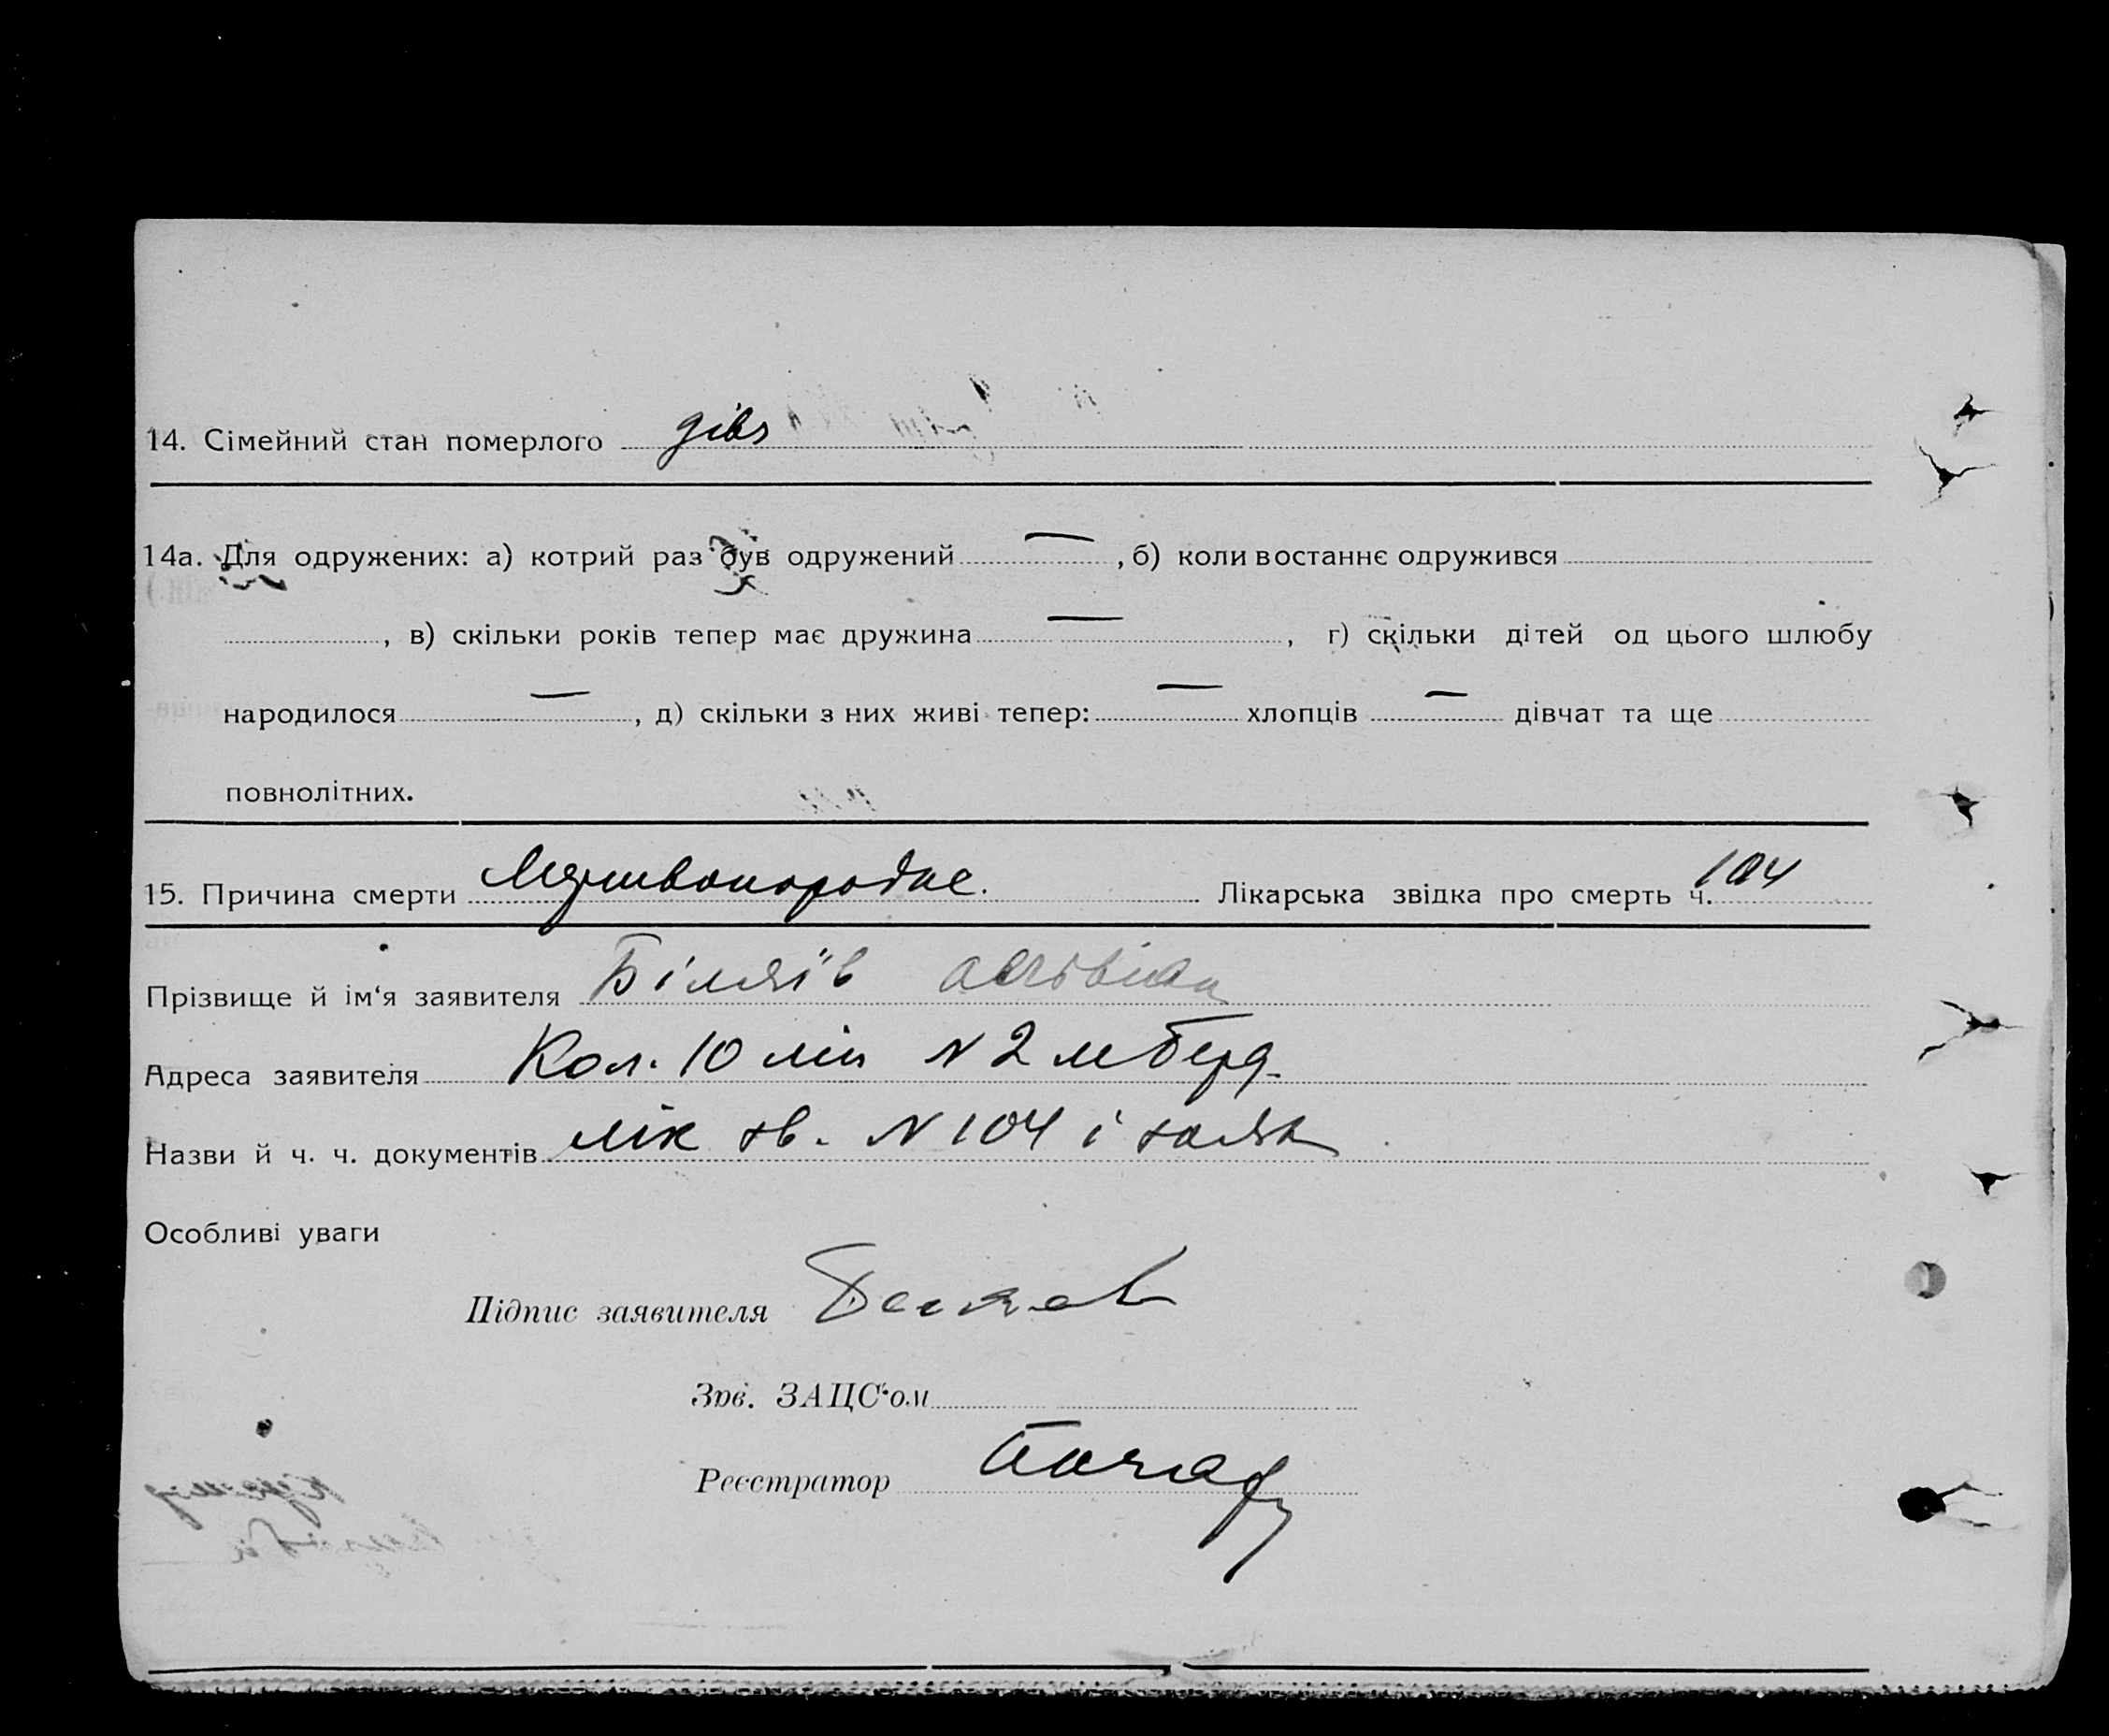 14. Сімейний стан померлого дівч
14а. Для одружених: а) котрий раз був одружений — , б) коли востаннє одружився
, в) скільки років тепер має дружина — , г) скільки дітей од цього шлюбу
народилося — , д) скільки з них живі тепер: — хлопців — дівчат та ще
повнолітних.
15. Причина смерти Мертвонародже. Лікарська звідка про смерть ч. 104
Прізвище й ім‘я заявителя Біляїв
Адреса заявителя Кол. 10 лін N 2 м Берд.
Назви й ч. ч. документів лік зв. N 104 і заява
Особливі уваги
Підпис заявителя
Зав. ЗАЦС‘ом
Реєстратор